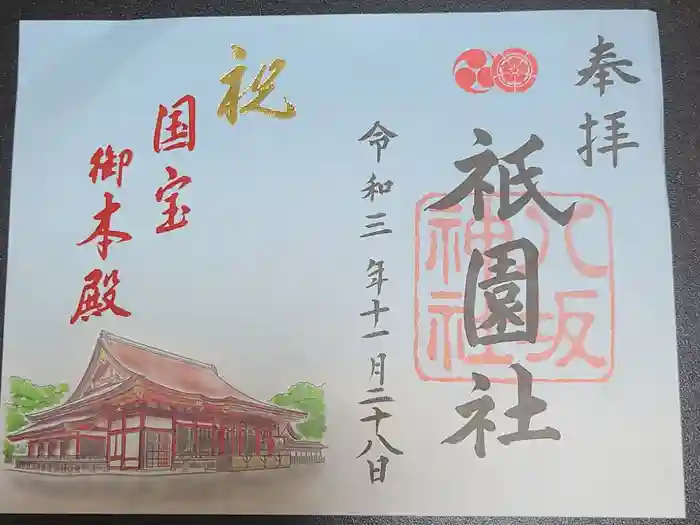 奉拝
祇園社
八坂
神社
令和三年十一月二十八日
祝
国宝
御本殿